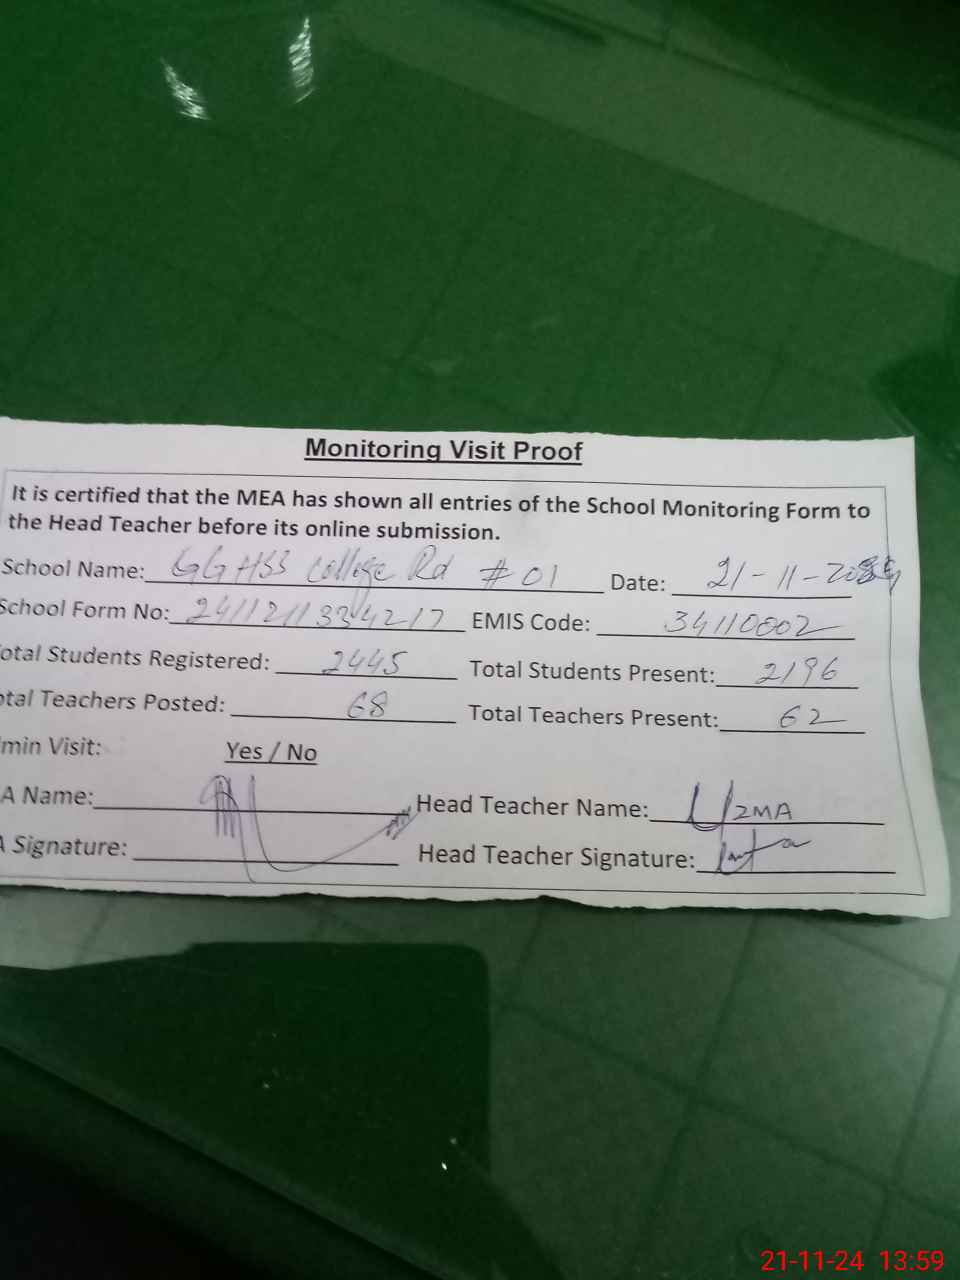 Monitoring Visit Proof
It is certified that the MEA has shown all entries of the School Monitoring Form to
the Head Teacher before its online submission.
School Name: GGHSS College Rd # 01 Date: 21-11-
School Form No: EMIS Code: 34110002
otal Students Registered: 2445 Total Students Present: 2196
tal Teachers Posted: 68 Total Teachers Present: 62
min Visit: Yes / No
A Name: Head Teacher Name: UZMA
A Signature: Head Teacher Signature:
21-11-24 13:59